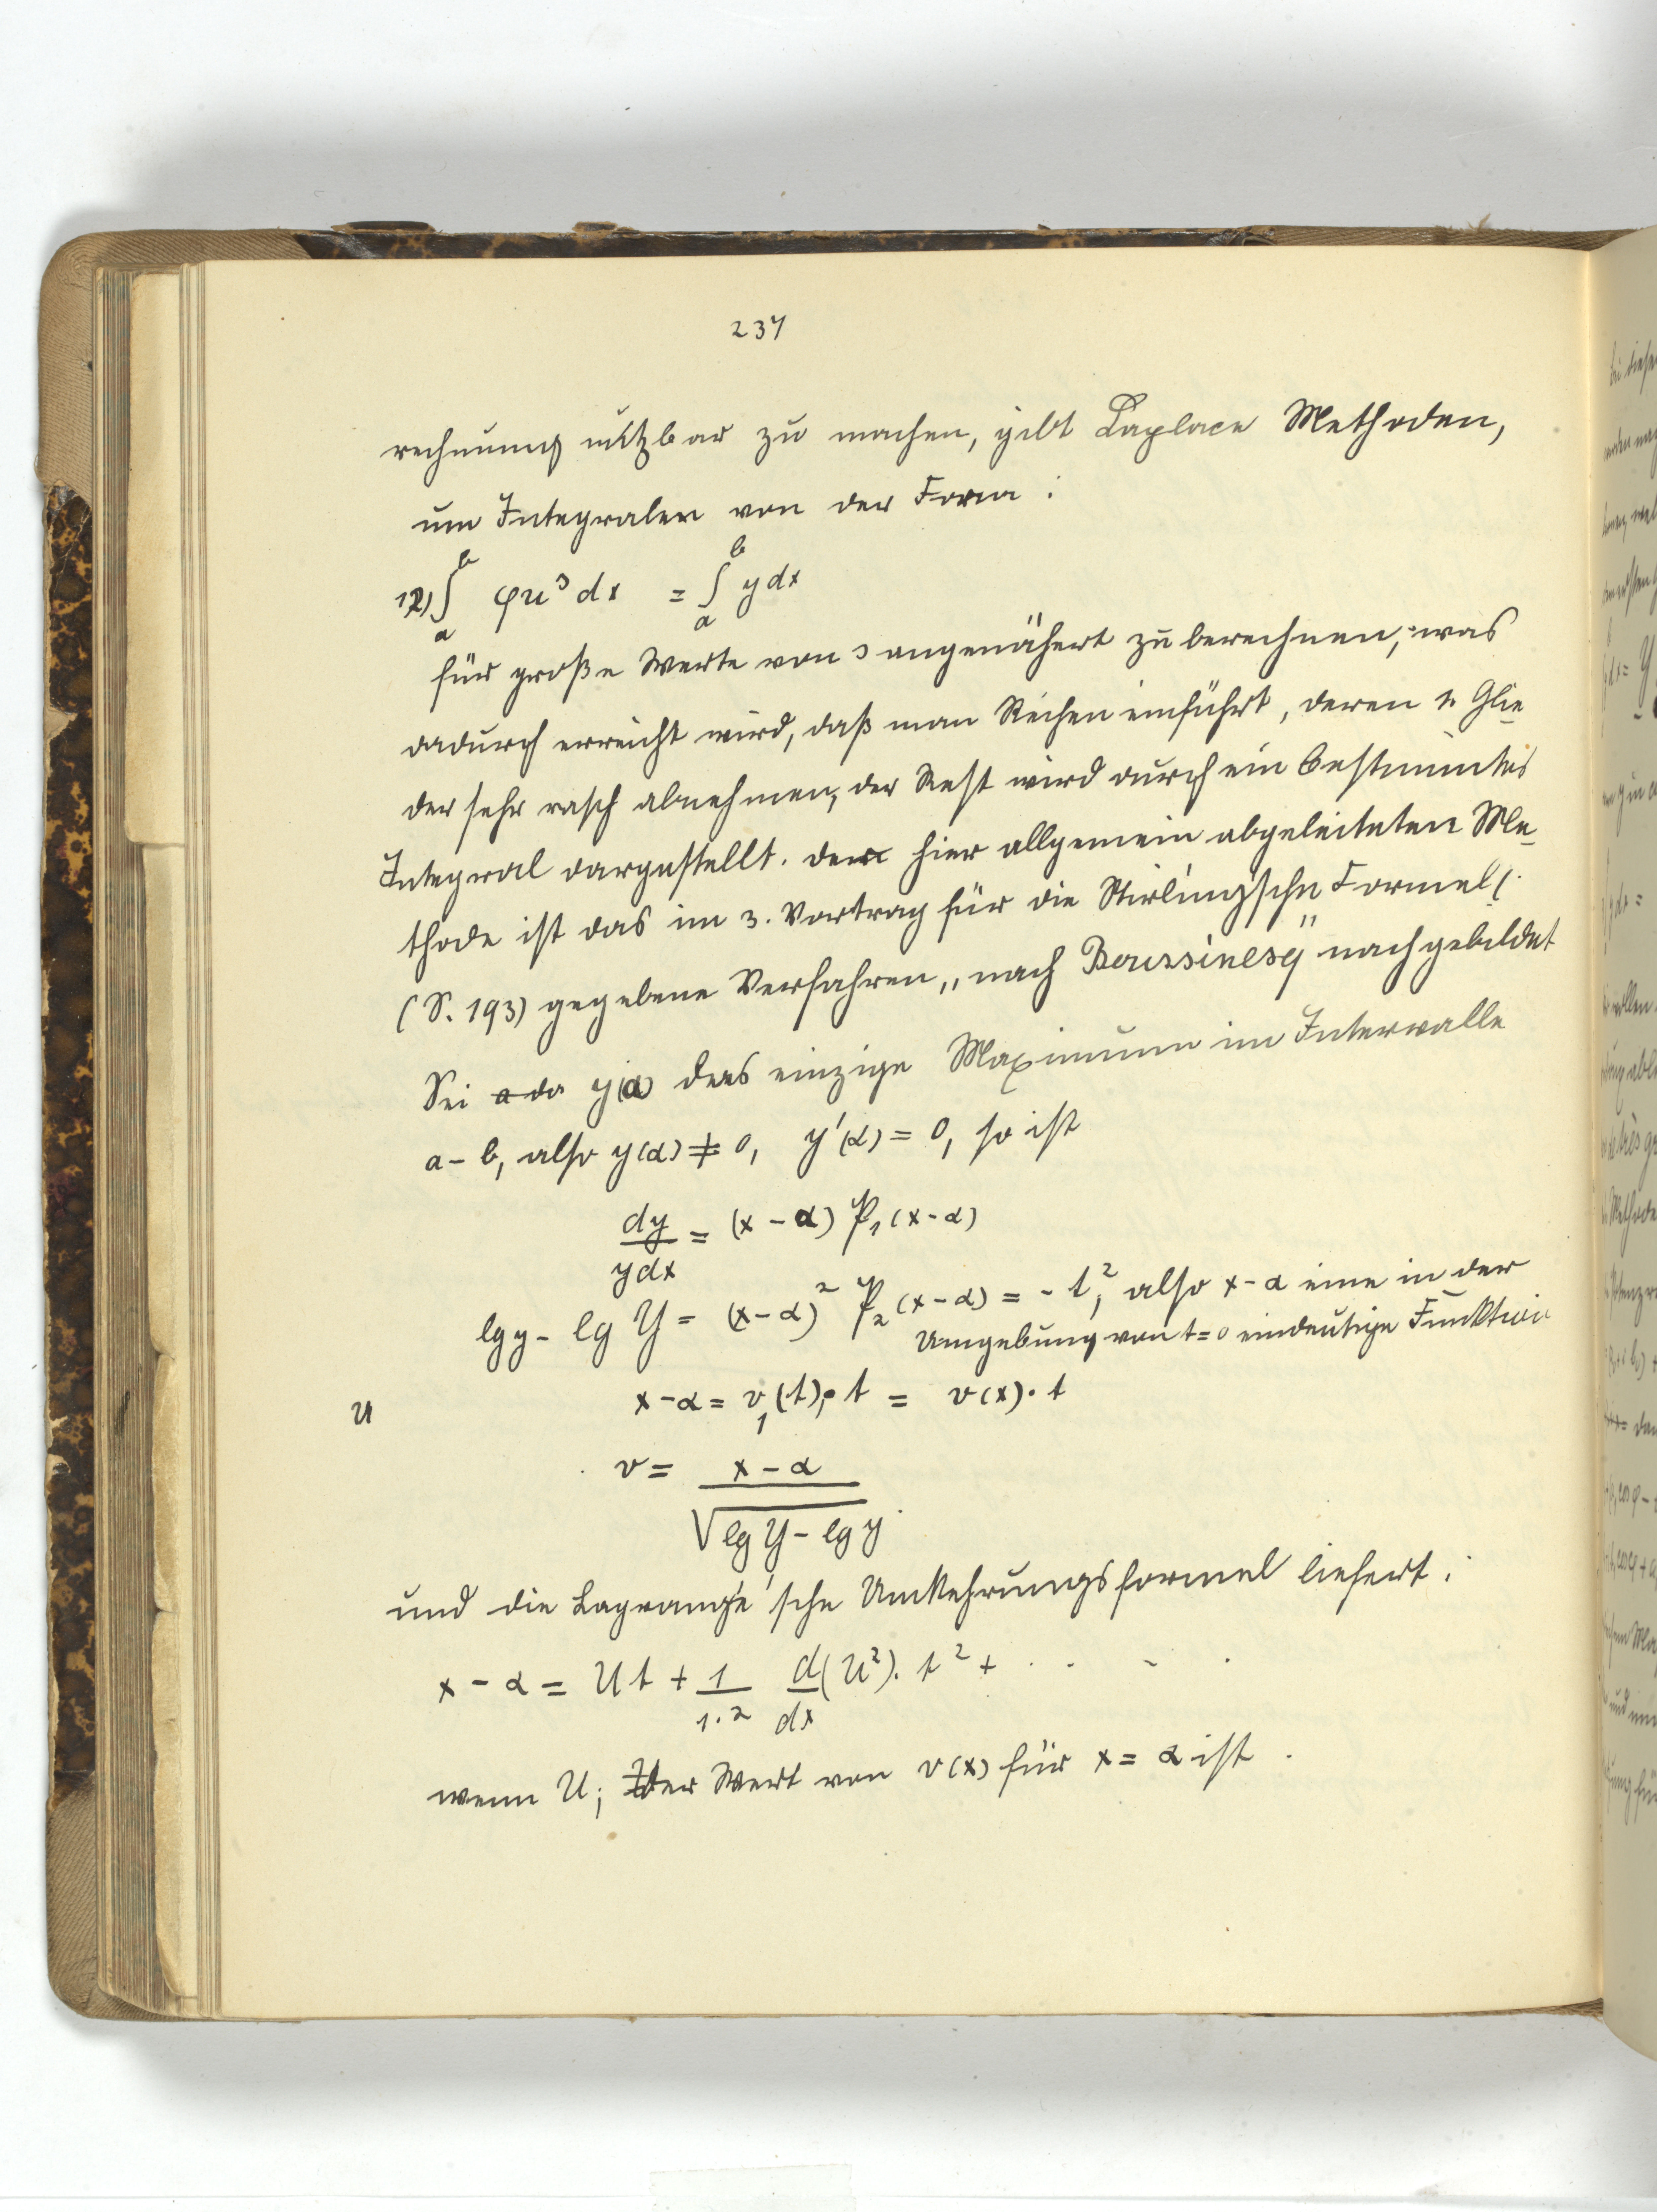 237
rechnung nützbar zu machen, gibt Laplace Methoden,
um Integralen von der Form :
12) ∫_a^b φu^s dx = ∫_a^b y dx
für große Werte von s angenähert zu berechnen, was
dadurch erreicht wird, daß man Reihen einführt, deren Glie
der sehr rasch abnehmen, der Rest wird durch ein bestimmtes
Integral dargestellt. Der hier allgemein abgeleiteten Me
thode ist das im 3. Vortrag für die Stirling'sche Formel
(S. 193) gegebene Verfahren „nach Boussinesq" nachgebildet
Sei y(α) das einzige Maximum im Intervalle
a – b, also y(α) ≠ 0, y'(α) = 0, so ist
dy/ydx = (x – α) P₁(x – α)
lg y – lg Y = (x – α)² P₂(x – α) = – t², also x – α eine in der
Umgebung von t = 0 eindeutige Funktion
x – α = v₁(t) · t = v(x) · t
U
v = (x – α)/√(lg Y – lg y)
und die Lagrange'sche Umkehrungsformel liefert :
x – α = U t + 1/1·2 d/dx (U²) · t² + · · · ·
wenn U, der Wert von v(x) für x = α ist .